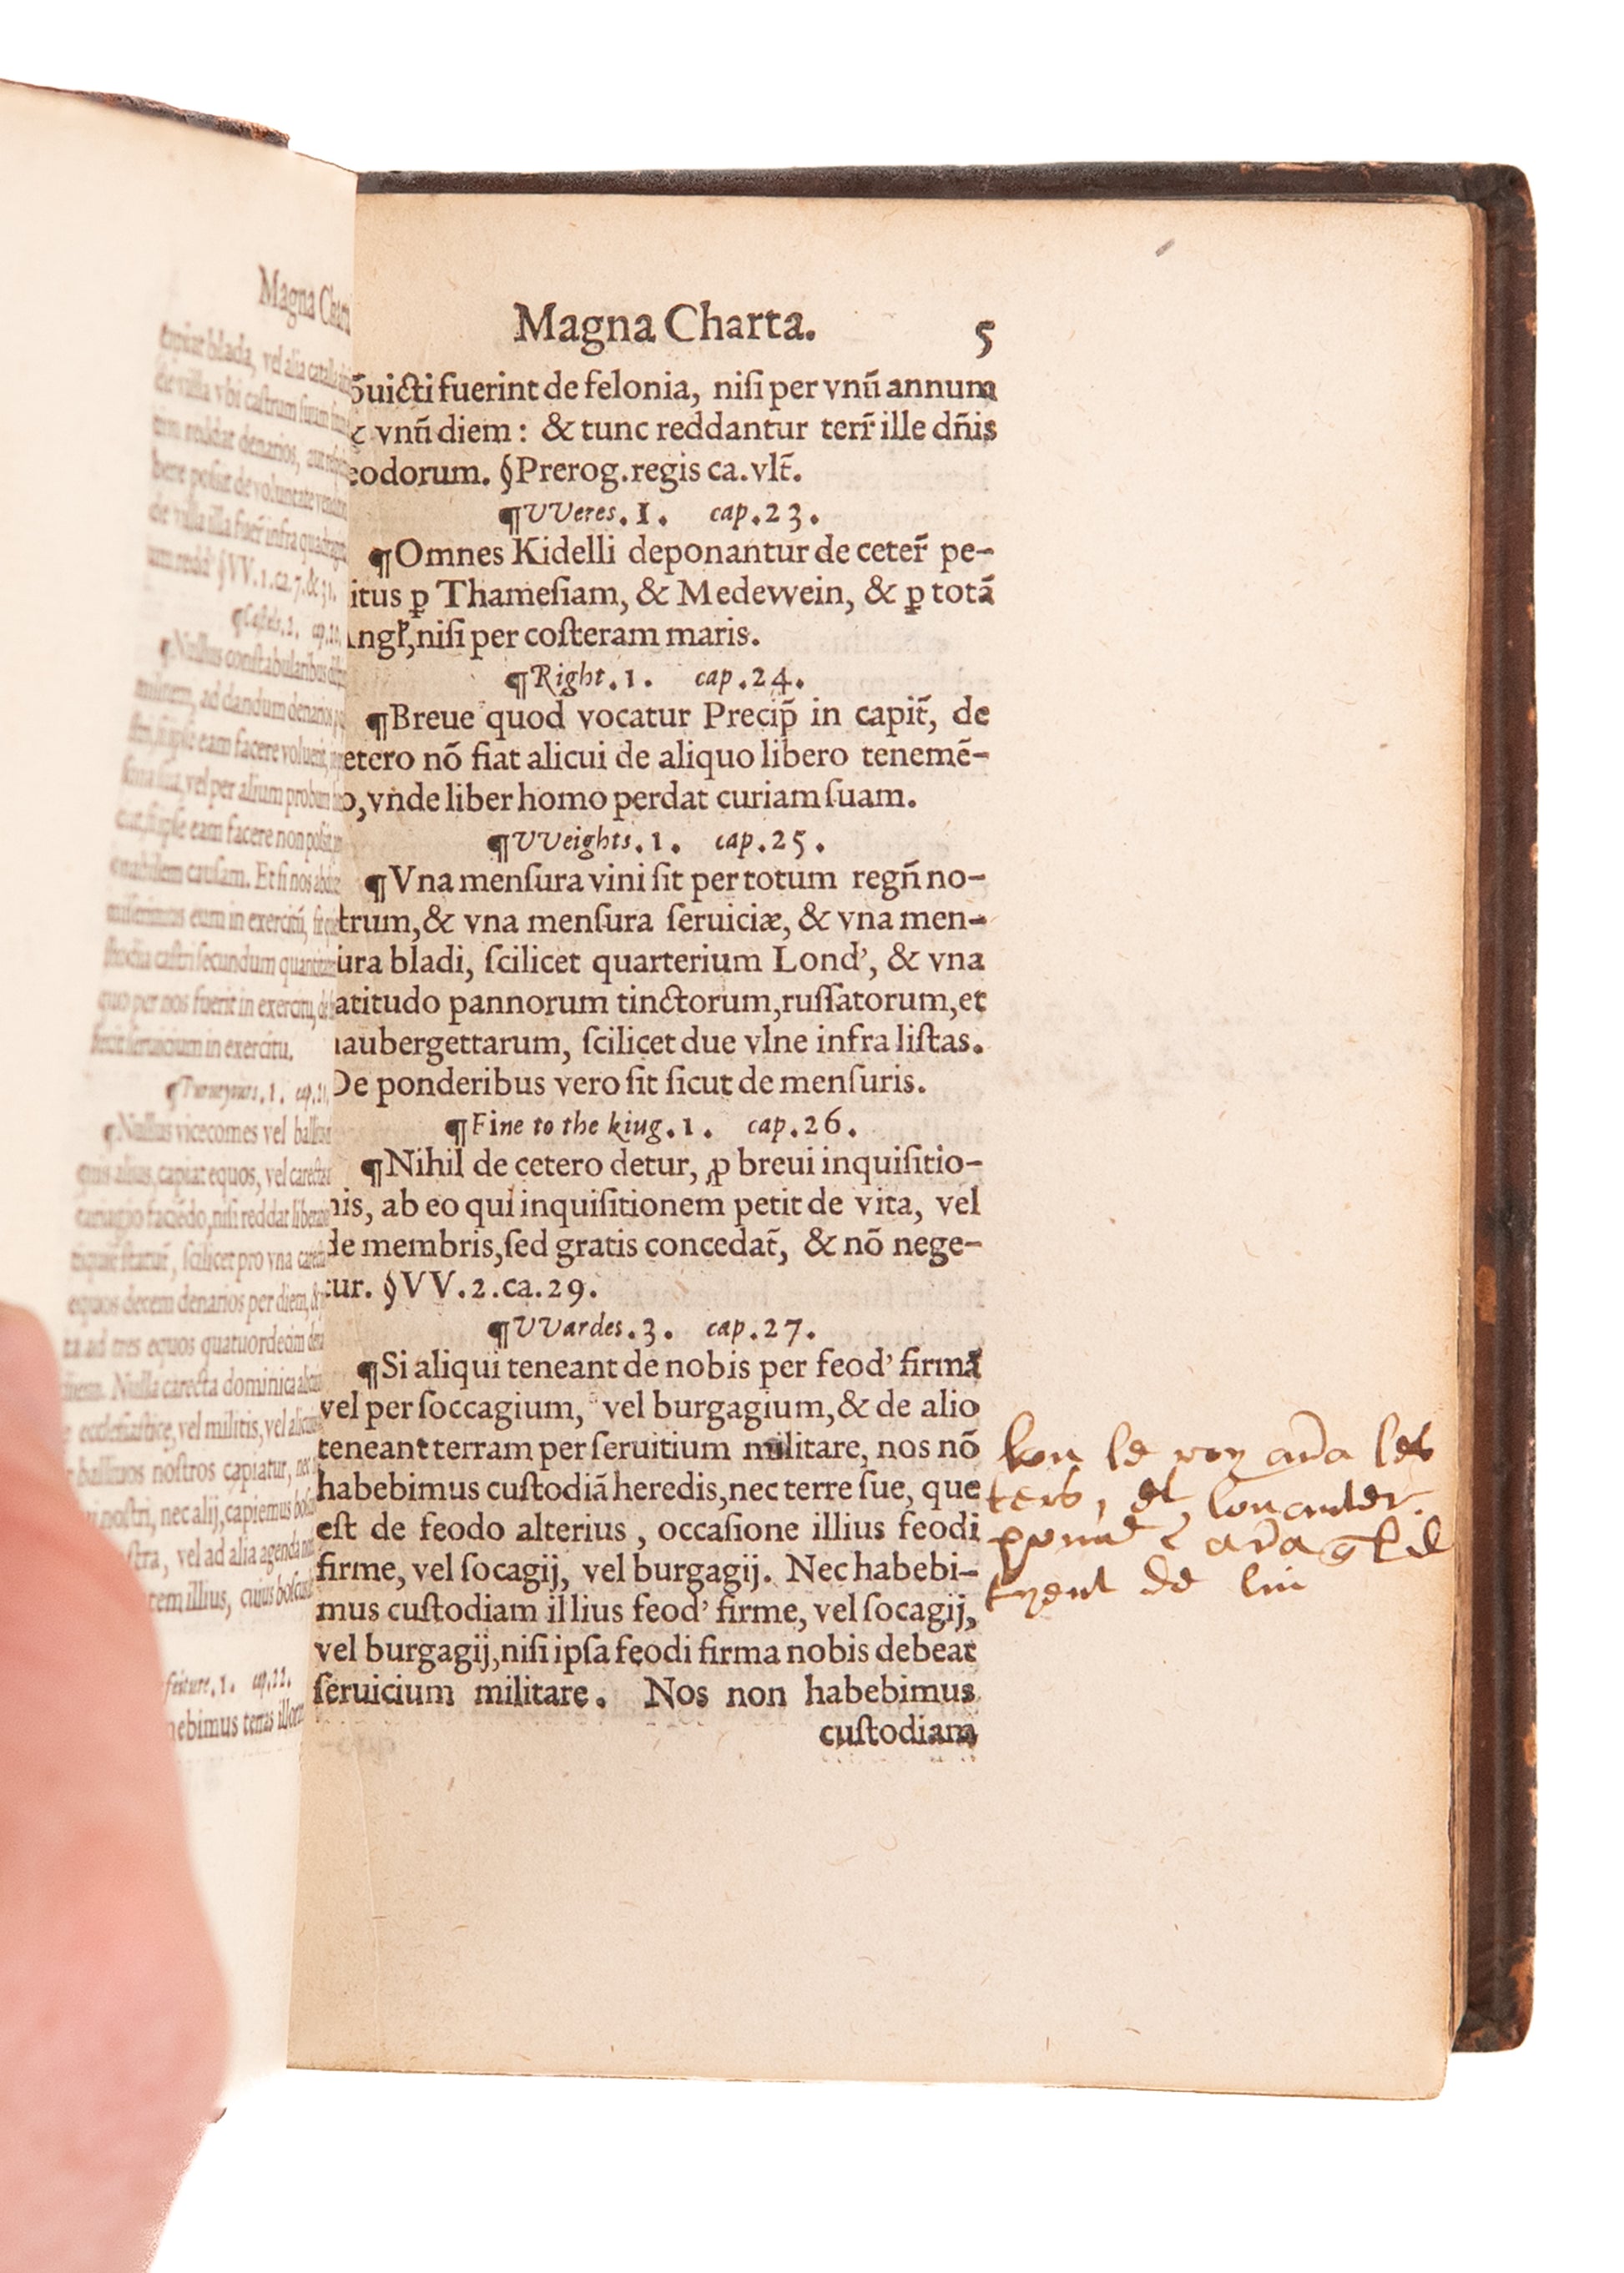 Magna Chart
capiat blada, vel alia catalla
de villa vbi castrum suum
tim reddat denarios, aut
bere possit de voluntate
de villa illa fuer̃ infra
tum redd' §VV.1.ca.7.&31.
¶Castels.1. cap.
¶Nullus constabularius
militem, ad dandum denarios
si ipse eam facere voluerit,
sona sua, vel per alium probum
ciat, si ipse eam facere non possit
onabilem causam. Et si nos
miserimus eum in exercitũ,
stodia castri secundum
quo per nos fuerit in exercitu,
fecit seruicium in exercitu.
¶Purueyours.1. cap.
¶Nullus vicecomes vel
quis alius, capiat equos, vel
cariagio faciẽdo, nisi reddat
scilicet pro vna
equos decem denarios per diem, &
ta ad tres equos quatuordecim
diem. Nulla carecta dominica
ecclesiastice, vel militis, vel
balliuos nostros capiatur,
nostri, nec alij, capiemus
stra, vel ad alia agenda
tem illius, cuius
feiture.1. cap.22.
nebimus terras
Magna Charta. 5
õuicti fuerint de felonia, nisi per vnũ annum
vnũ diem: & tunc reddantur terr̃ ille dñis
eodorum. §Prerog.regis ca.vlt̃.
¶VVeres.1. cap.23.
¶Omnes Kidelli deponantur de ceter̃ pe-
itus ꝑ Thamesiam, & Medewein, & ꝑ totã
ngl̃, nisi per costeram maris.
¶Right.1. cap.24.
¶Breue quod vocatur Precip̃ in capit̃, de
etero nõ fiat alicui de aliquo libero tenemẽ-
o, vnde liber homo perdat curiam suam.
¶VVeights.1. cap.25.
¶Vna mensura vini sit per totum regñ no-
trum, & vna mensura seruiciæ, & vna men-
ura bladi, scilicet quarterium Lond', & vna
atitudo pannorum tinctorum, russatorum, et
haubergettarum, scilicet due vlne infra listas.
De ponderibus vero sit sicut de mensuris.
¶Fine to the kiug.1. cap.26.
¶Nihil de cetero detur, ꝓ breui inquisitio-
nis, ab eo qui inquisitionem petit de vita, vel
de membris, sed gratis concedat̃, & nõ nege-
tur. §VV.2.ca.29.
¶VVardes.3. cap.27.
¶Si aliqui teneant de nobis per feod' firmã
vel per soccagium, vel burgagium, & de alio
teneant terram per seruitium militare, nos nõ
habebimus custodiã heredis, nec terre sue, que
est de feodo alterius, occasione illius feodi
firme, vel socagij, vel burgagij. Nec habebi-
mus custodiam illius feod' firme, vel socagij,
vel burgagij, nisi ipsa feodi firma nobis debeat
seruicium militare. Nos non habebimus
custodiam
le roy les
et
de lui